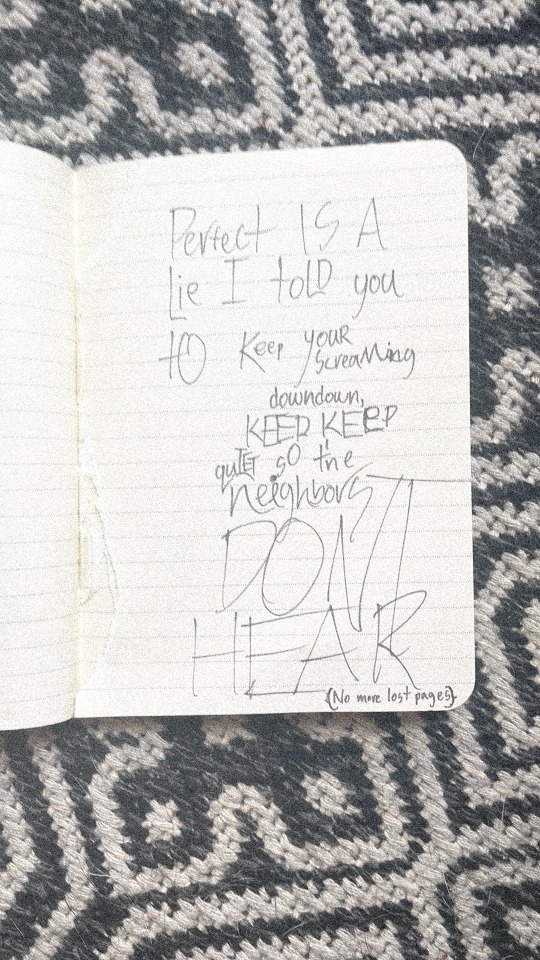 Perfect IS A
Lie I told you
to Keep your
screaming
downdown,
KEEP KEEP
quiet so the
neighbors
DON'T
HEAR
{No more lost pages}